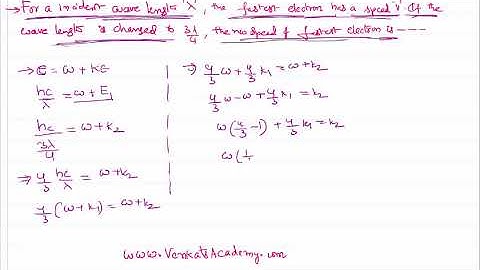 → For a incident wave length 'λ', the fastest electron has a speed 'v'. If the
wave length is changed to 3λ/4, the new speed of fastest electron is ----
→ E = ω + KE
hc/λ = ω + E₁
hc/(3λ/4) = ω + k₂
⇒ 4/3 hc/λ = ω + k₂
4/3 (ω + k₁) = ω + k₂
⇒ 4/3 ω + 4/3 k₁ = ω + k₂
4/3 ω - ω + 4/3 k₁ = k₂
ω (4/3 - 1) + 4/3 k₁ = k₂
ω (1/
www.VenkatsAcademy.com